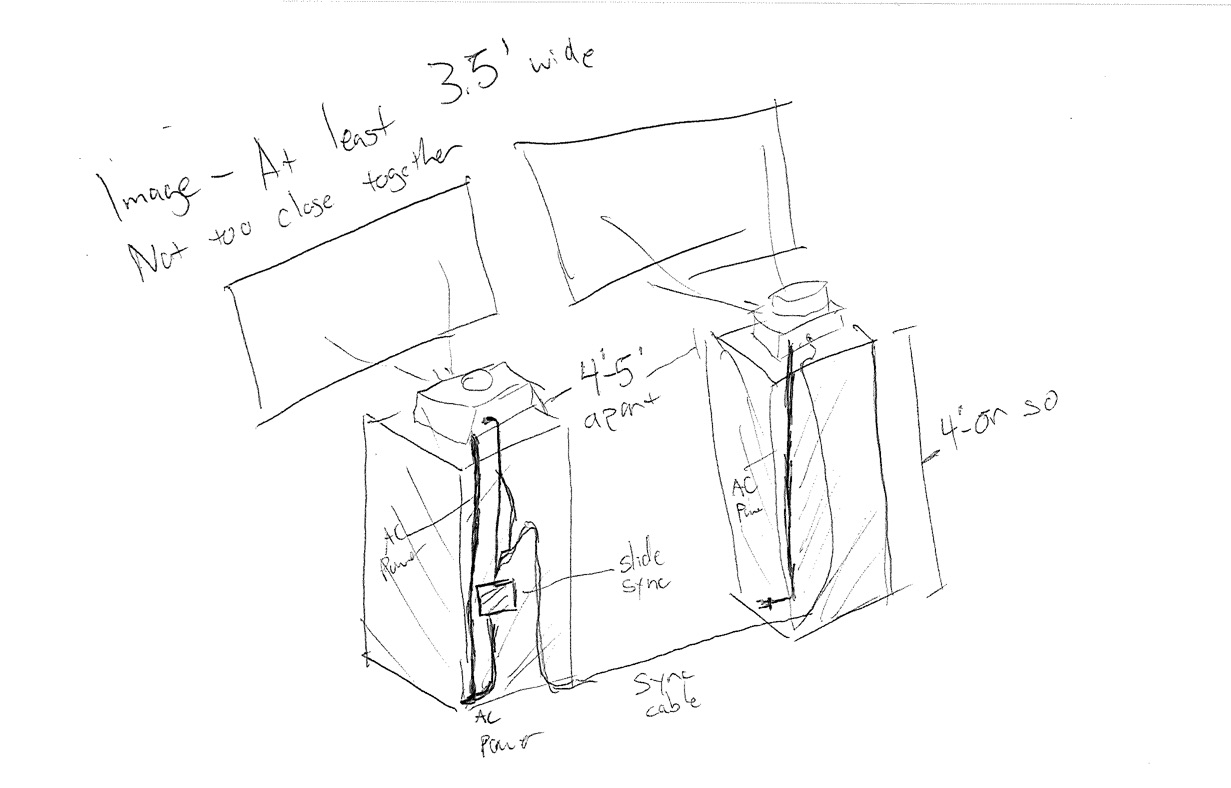 Image - At least 3.5' wide
Not too close together
4'-5'
apart
4'-or so
AC
Power
AC
Power
slide
sync
Sync
cable
AC
Power